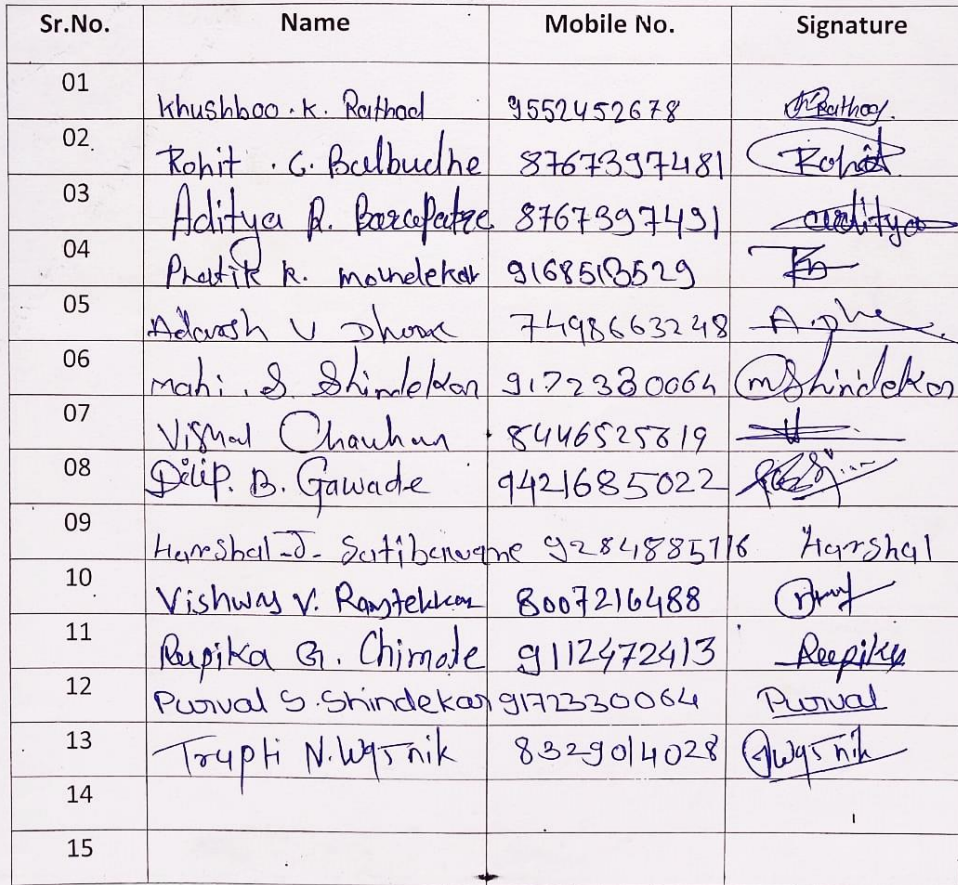 Sr.No. Name Mobile No. Signature
01 Khushboo. K. Rathod 9552452678 Rathod.
02 Rohit . G. Balbudhe 8767397481 Rohit
03 Aditya R. Barapatre 8767397491 aditya
04 Pratik K. moundekar 9168513529
05 Adarsh V 7498663248
06 mahi . S. Shindekar 9172330064 mShindekar
07 Vishal Chauhan 8446525819
08 Dilip. B. Gawade 9421685022
09 Harshal J. 9284885716 Harshal
10 Vishwas V. Ramtekkar 8007216488
11 Rupika G. Chimote 9112472413 Rupika
12 Purval S. Shindekar 9172330064 Purval
13 Trupti N. Wasnik 8329014028 Wasnik
14
15